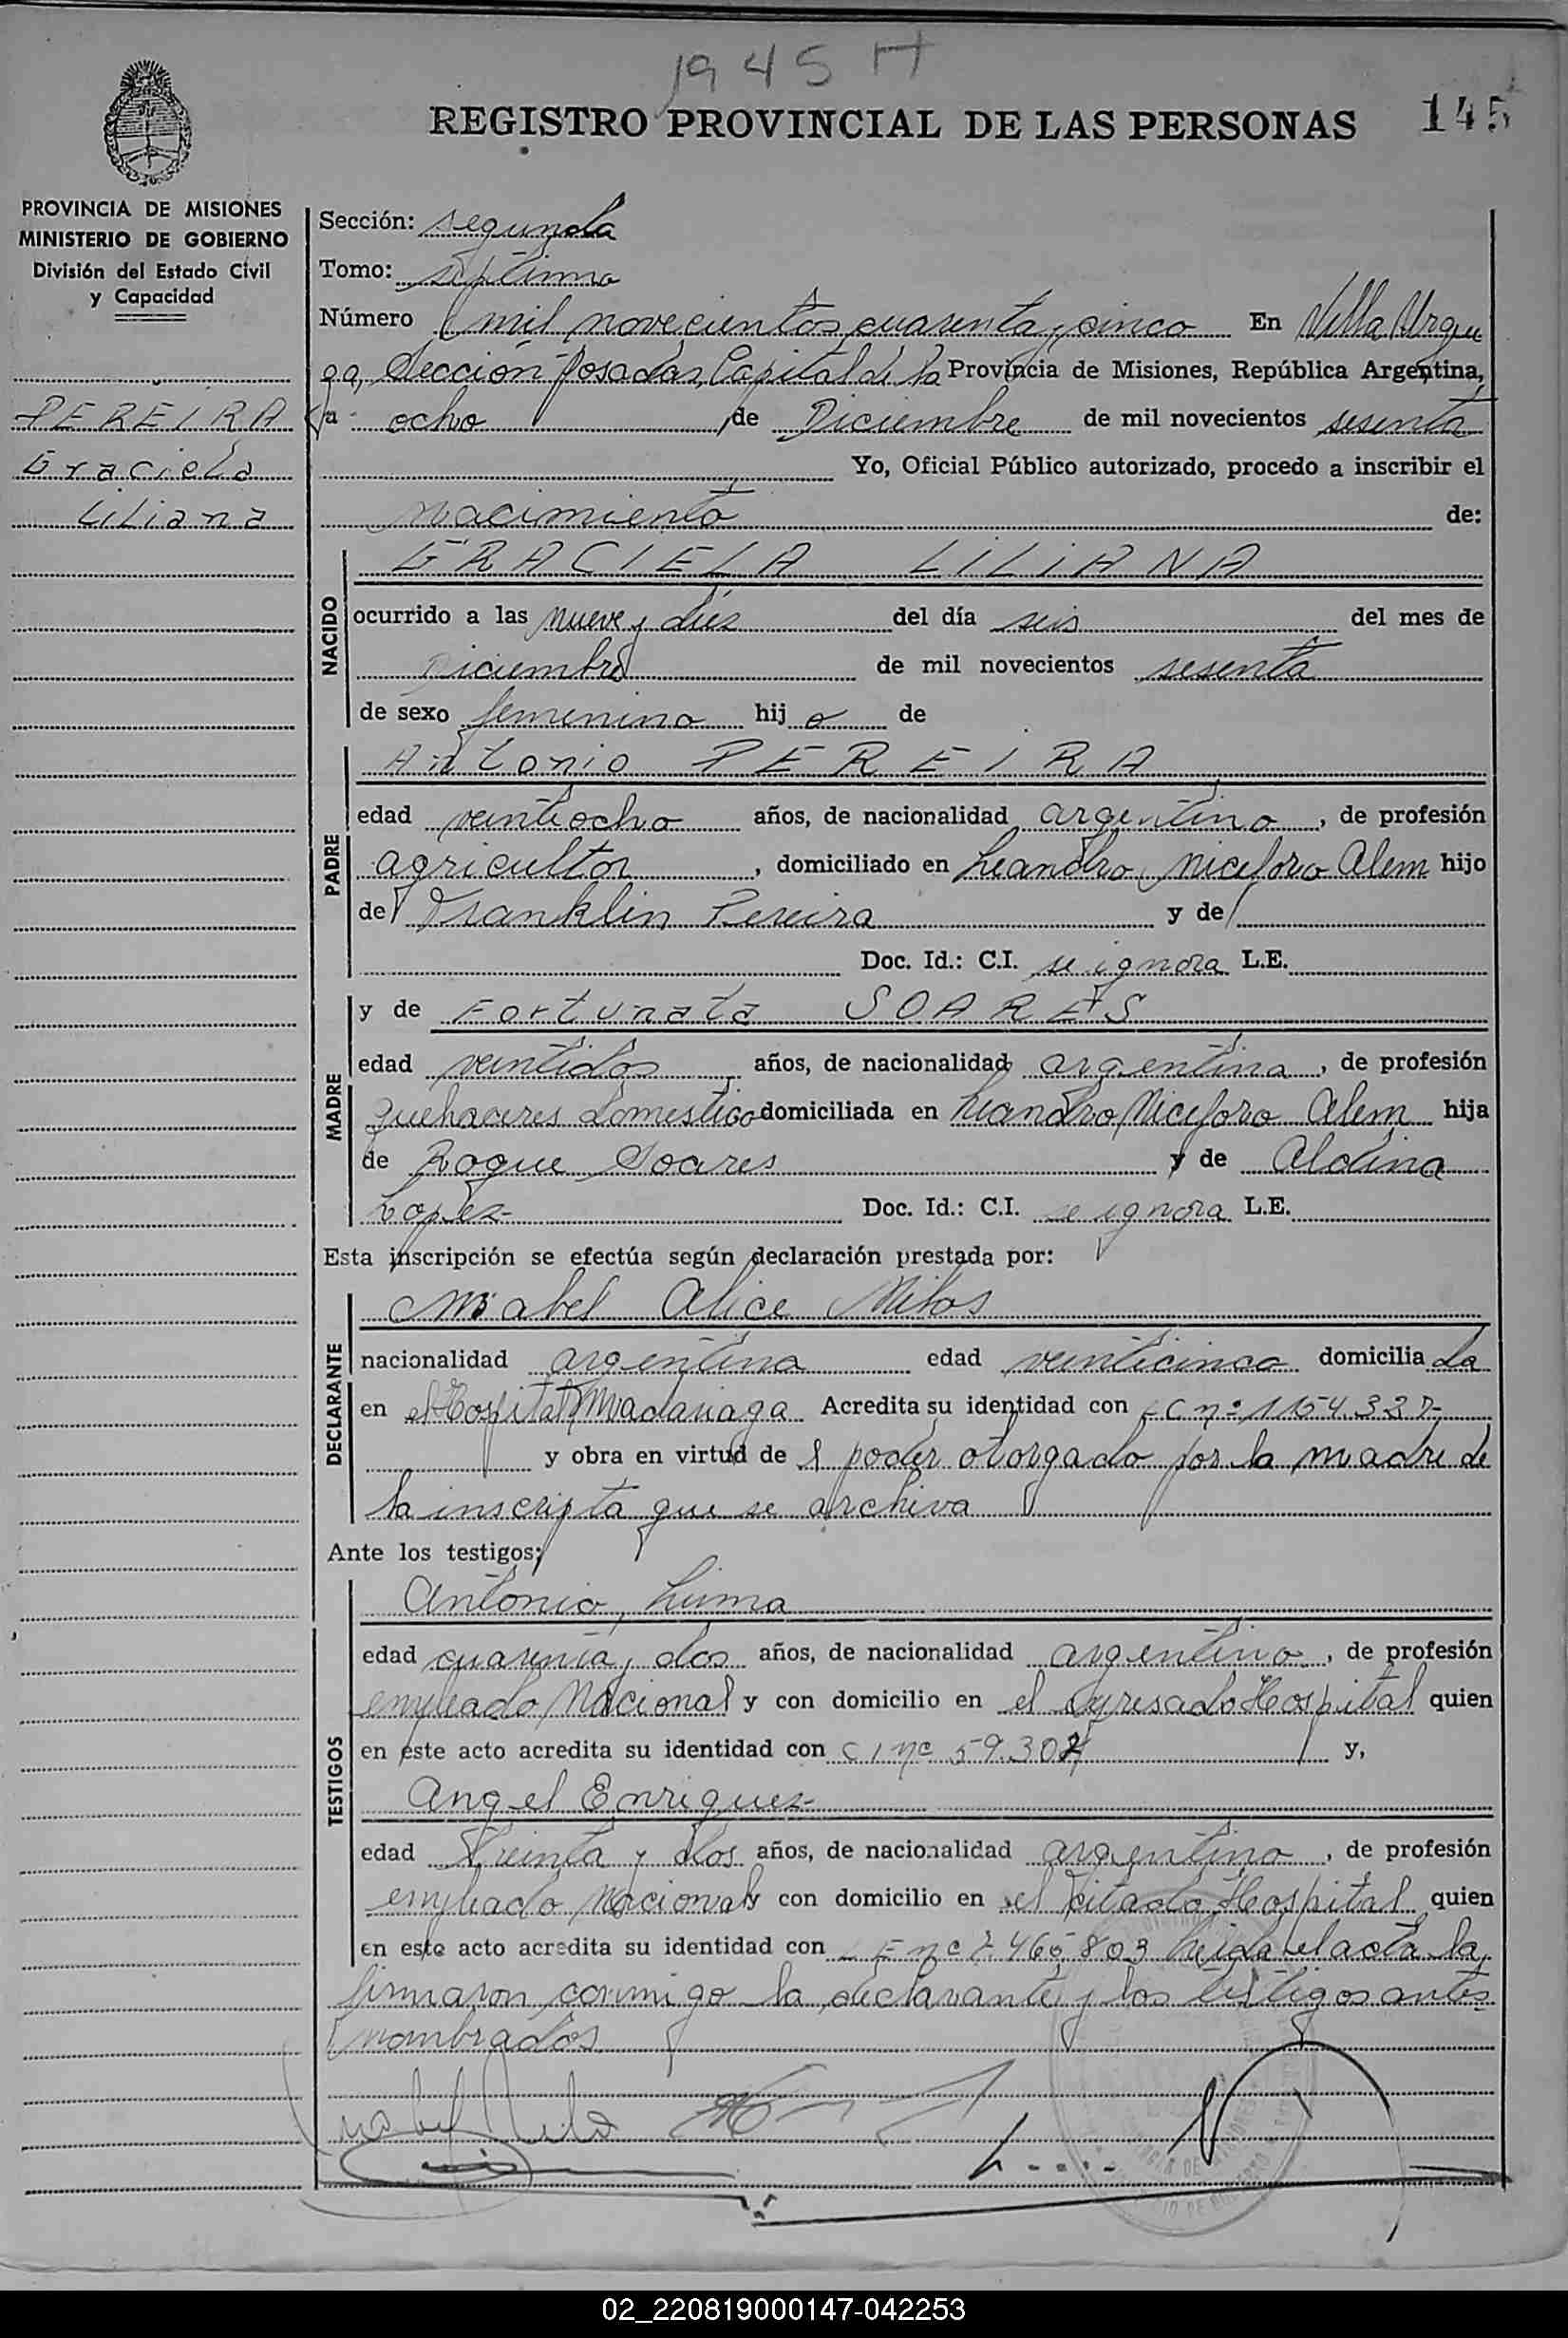 1945 H
REGISTRO PROVINCIAL DE LAS PERSONAS 145
PROVINCIA DE MISIONES
MINISTERIO DE GOBIERNO
División del Estado Civil
y Capacidad
PEREIRA
Graciela
Liliana
Sección: segunda
Tomo: séptimo
Número mil novecientos cuarenta y cinco En Villa Urqui
ga, Sección Posadas, Capital de la Provincia de Misiones, República Argentina,
a ocho de Diciembre de mil novecientos sesenta
Yo, Oficial Público autorizado, procedo a inscribir el
nacimiento de:
NACIDO
GRACIELA LILIANA
ocurrido a las nueve y diez del día seis del mes de
Diciembre de mil novecientos sesenta
de sexo femenino hij a de
PADRE
Antonio PEREIRA
edad veintiocho años, de nacionalidad argentino, de profesión
agricultor, domiciliado en Leandro Niceforo Alem hijo
de Franklin Pereira y de
Doc. Id.: C.I. se ignora L.E.
MADRE
y de Fortunata SOARES
edad veintidos años, de nacionalidad argentina, de profesión
quehaceres domestico domiciliada en Leandro Niceforo Alem hija
de Roque Soares y de Aldina
Lopez- Doc. Id.: C.I. se ignora L.E.
Esta inscripción se efectúa según declaración prestada por:
DECLARANTE
Mabel Alice
nacionalidad argentina edad veinticinco domicilia da
en el Hospital Madariaga Acredita su identidad con C nº 1154.337-
y obra en virtud de l poder otorgado por la madre de
la inscripta que se archiva
Ante los testigos;
TESTIGOS
Antonio Lima
edad cuarenta y dos años, de nacionalidad argentino, de profesión
empleado Nacional y con domicilio en el expresado Hospital quien
en este acto acredita su identidad con C I nº 59.304 y,
Angel Enriquez-
edad treinta y dos años, de nacionalidad argentino, de profesión
empleado Nacional y con domicilio en el citado Hospital quien
en este acto acredita su identidad con L E nº 7.465.803 Leída el acta la
firmaron conmigo la declarante y los testigos antes
nombrados
02_220819000147-042253